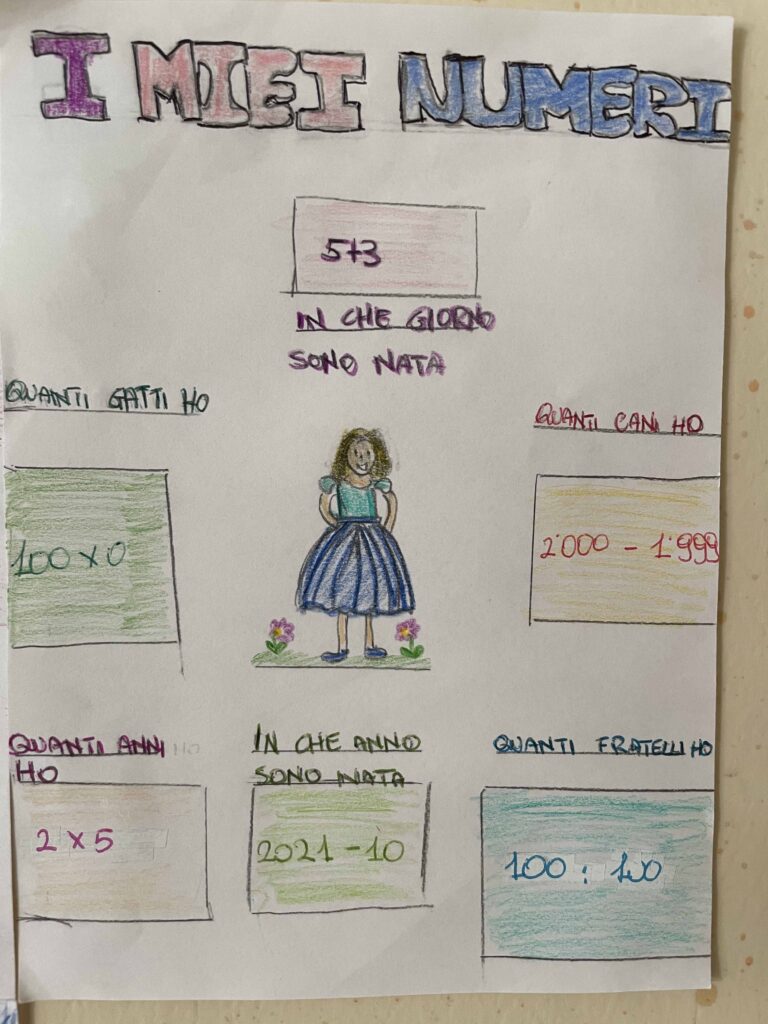 I MIEI NUMERI
5+3
IN CHE GIORNO
SONO NATA
QUANTI GATTI HO
100 x 0
QUANTI CANI HO
2'000 - 1'999
QUANTI ANNI
HO
2 x 5
IN CHE ANNO
SONO NATA
2021 - 10
QUANTI FRATELLI HO
100 : 100